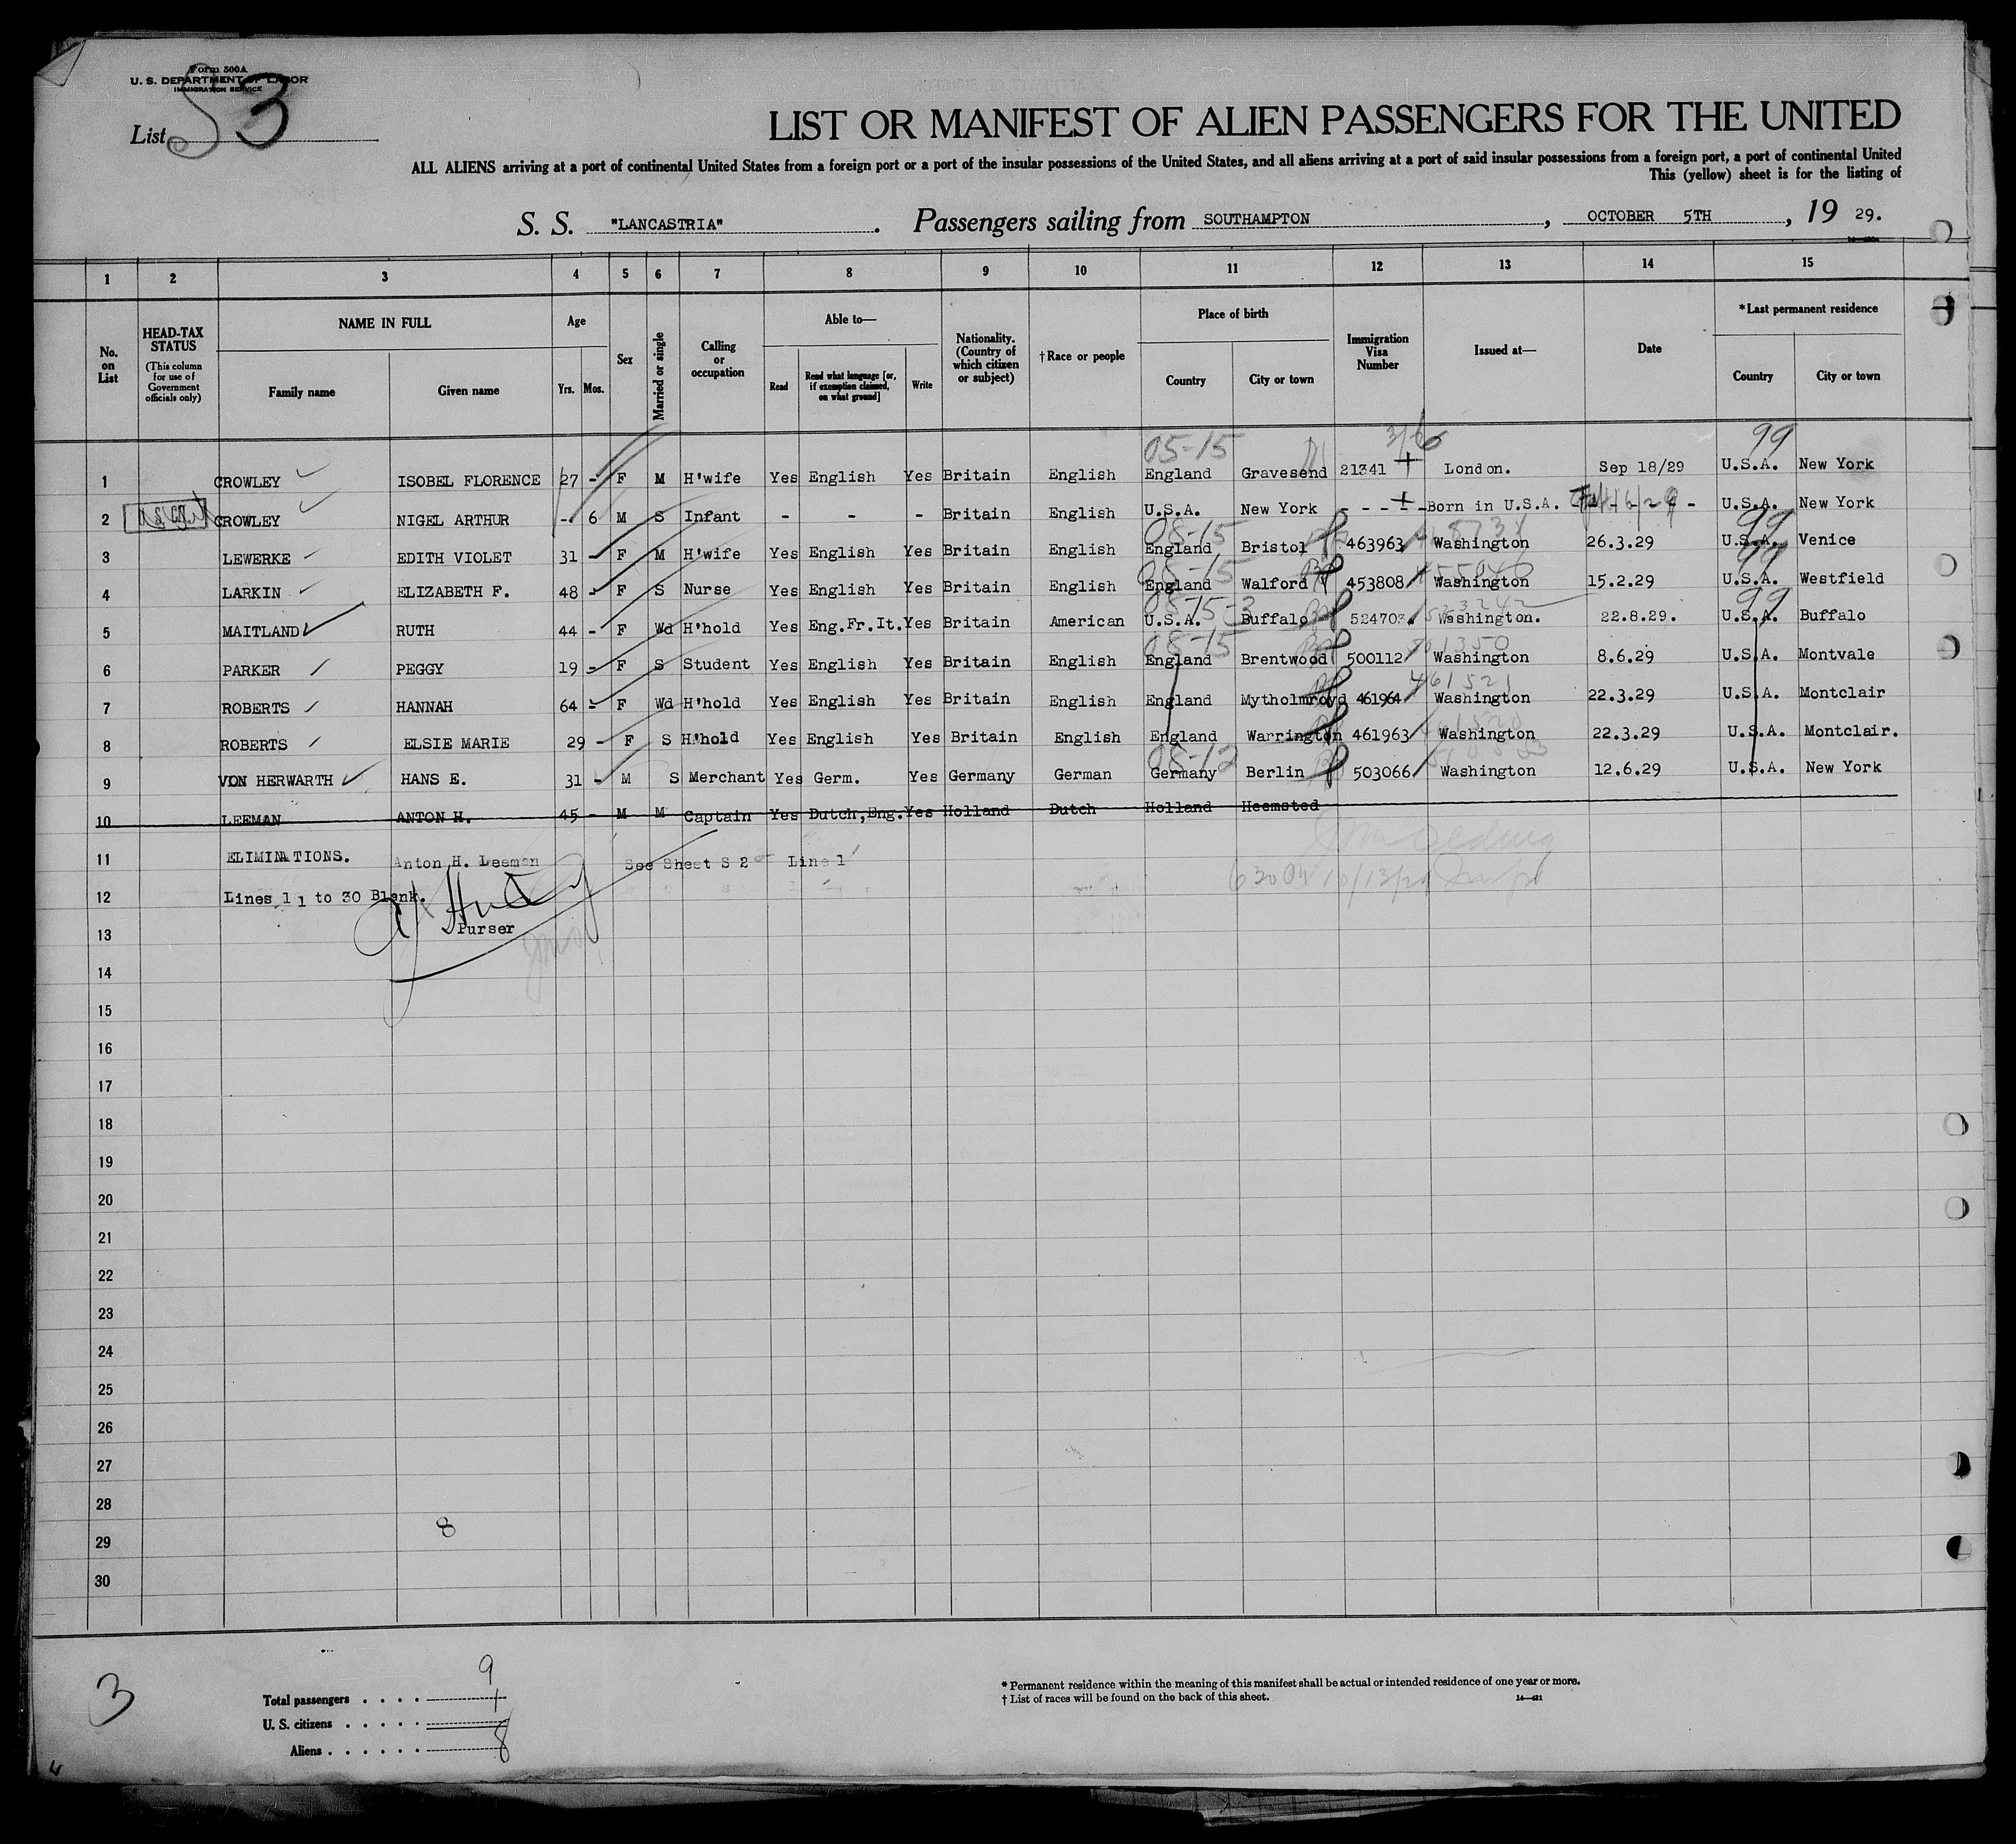 Form 500A
U. S. DEPARTMENT OF LABOR
IMMIGRATION SERVICE
List S 3
LIST OR MANIFEST OF ALIEN PASSENGERS FOR THE UNITED
ALL ALIENS arriving at a port of continental United States from a foreign port or a port of the insular possessions of the United States, and all aliens arriving at a port of said insular possessions from a foreign port, a port of continental United
This (yellow) sheet is for the listing of
S. S. "LANCASTRIA" . Passengers sailing from SOUTHAMPTON , OCTOBER 5TH , 19 29.
1 2 3 4 5 6 7 8 9 10 11 12 13 14 15
No. on List
HEAD-TAX STATUS
(This column for use of Government officials only)
NAME IN FULL
Family name
Given name
Age
Yrs. Mos.
Sex
Married or single
Calling or occupation
Able to—
Read
Read what language [or, if exemption claimed, on what ground]
Write
Nationality. (Country of which citizen or subject)
†Race or people
Place of birth
Country
City or town
Immigration Visa Number
Issued at—
Date
*Last permanent residence
Country
City or town
05-15 3/66 99
1 CROWLEY ISOBEL FLORENCE 27 - F M H'wife Yes English Yes Britain English England Gravesend 21341 + London. Sep 18/29 U.S.A. New York
2 CROWLEY NIGEL ARTHUR - 6 M S Infant - - - Britain English U.S.A. New York - - - - Born in U.S.A. U.S.A. New York
08-15 99
3 LEWERKE EDITH VIOLET 31 - F M H'wife Yes English Yes Britain English England Bristol 463963 Washington 26.3.29 U.S.A. Venice
08-15 99
4 LARKIN ELIZABETH F. 48 - F S Nurse Yes English Yes Britain English England Walford 453808 Washington 15.2.29 U.S.A. Westfield
08-15-3 99
5 MAITLAND RUTH 44 - F Wd H'hold Yes Eng.Fr.It. Yes Britain American U.S.A. Buffalo 524703 Washington. 22.8.29. U.S.A. Buffalo
08-15
6 PARKER PEGGY 19 - F S Student Yes English Yes Britain English England Brentwood 500112 Washington 8.6.29 U.S.A. Montvale
461521
7 ROBERTS HANNAH 64 - F Wd H'hold Yes English Yes Britain English England Mytholmroyd 461964 Washington 22.3.29 U.S.A. Montclair
8 ROBERTS ELSIE MARIE 29 - F S H'hold Yes English Yes Britain English England Warrington 461963 Washington 22.3.29 U.S.A. Montclair.
08-12
9 VON HERWARTH HANS E. 31 - M S Merchant Yes Germ. Yes Germany German Germany Berlin 503066 Washington 12.6.29 U.S.A. New York
10 LEEMAN ANTON H. 45 - M M Captain Yes Dutch,Eng. Yes Holland Dutch Holland Heemsted
11 ELIMINATIONS. Anton H. Leeman See Sheet S 2 - Line 1
12 Lines 11 to 30 Blank.
13 Purser
14
15
16
17
18
19
20
21
22
23
24
25
26
27
28
8
29
30
3
Total passengers . . . . 9
U. S. citizens . . . . . 1
Aliens . . . . . . 8
* Permanent residence within the meaning of this manifest shall be actual or intended residence of one year or more.
† List of races will be found on the back of this sheet. 14—431